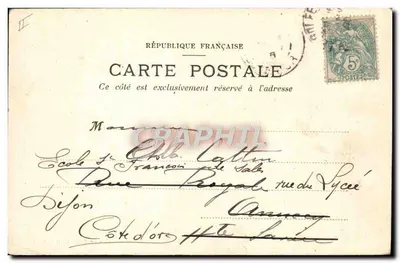 RÉPUBLIQUE FRANÇAISE
CARTE POSTALE
Ce côté est exclusivement réservé à l'adresse
Monsieur
CHAPITRE.COM
Ch. Cottin
Ecole St François de Sales
Rue Royale rue du Lycée
Dijon
Annecy
Côte d'or Hte Savoie
5